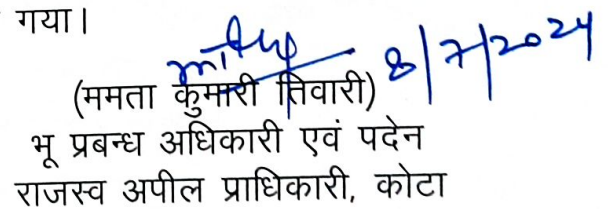 गया।
8/7/2024
(ममता कुमारी तिवारी)
भू प्रबन्ध अधिकारी एवं पदेन
राजस्व अपील प्राधिकारी, कोटा